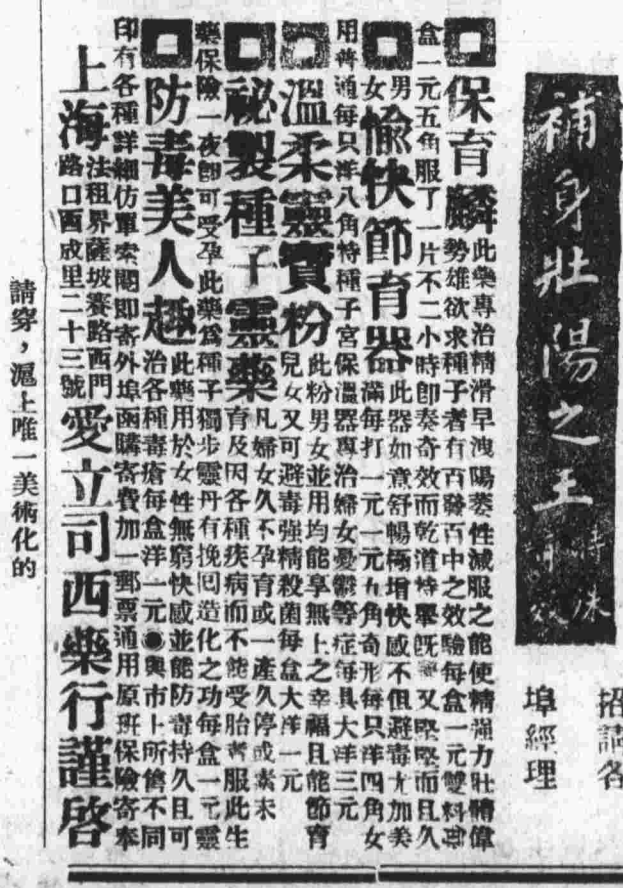 補身壯陽之王
特殊
奇效
招請各
埠經理
保育麟 此藥專治精滑早洩陽萎性減服之能使精强力壯體偉
勢雄欲求種子者有百發百中之效驗每盒一元雙料
盒一元五角服了一片不二小時即奏奇效而乾道特舉旣 又堅而且久
男女愉快節育器 此器如意舒暢極增快感不但避毒尤加美
滿每打一元一元五角奇形每只洋四角女
用普通每只洋八角特種子宮保溫器專治婦女憂鬱等症每具大洋三元
溫柔靈寶粉 此粉男女並用均能享無上之幸福且能節育
兒女又可避毒强精殺菌每盒大洋一元
祕製種子靈藥 凡婦女久不孕育或一產久停或素未
育及因各種疾病而不能受胎者服此生
藥保險一夜即可受孕此藥爲種子獨步靈丹有挽回造化之功每盒一元靈
防毒美人趣 此藥用於女性無窮快感並能防毒持久且可
治各種毒瘡每盒洋一元◉與市上所售不同
印有各種詳細仿單索閱即寄外埠函購寄費加一郵票通用原班保險寄奉
上海 法租界薩坡賽路西門
路口西成里二十三號 愛立司西藥行謹啓
請穿，滬上唯一美術化的